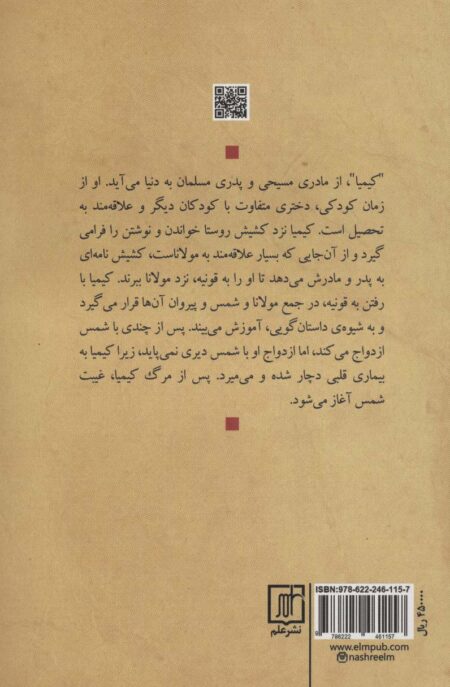 "کیمیا"، از مادری مسیحی و پدری مسلمان به دنیا می‌آید. او از
زمان کودکی، دختری متفاوت با کودکان دیگر و علاقه‌مند به
تحصیل است. کیمیا نزد کشیش روستا خواندن و نوشتن را فرامی
گیرد و از آن‌جایی که بسیار علاقه‌مند به مولاناست، کشیش نامه‌ای
به پدر و مادرش می‌دهد تا او را به قونیه، نزد مولانا ببرند. کیمیا با
رفتن به قونیه، در جمع مولانا و شمس و پیروان آن‌ها قرار می‌گیرد
و به شیوه‌ی داستان‌گویی، آموزش می‌بیند. پس از چندی با شمس
ازدواج می‌کند، اما ازدواج او با شمس دیری نمی‌پاید، زیرا کیمیا به
بیماری قلبی دچار شده و می‌میرد. پس از مرگ کیمیا، غیبت
شمس آغاز می‌شود.
ISBN:978-622-246-115-7
9 786222 461157
www.elmpub.com
nashreelm
نشرعلم
۴۵۰۰۰۰ ریال